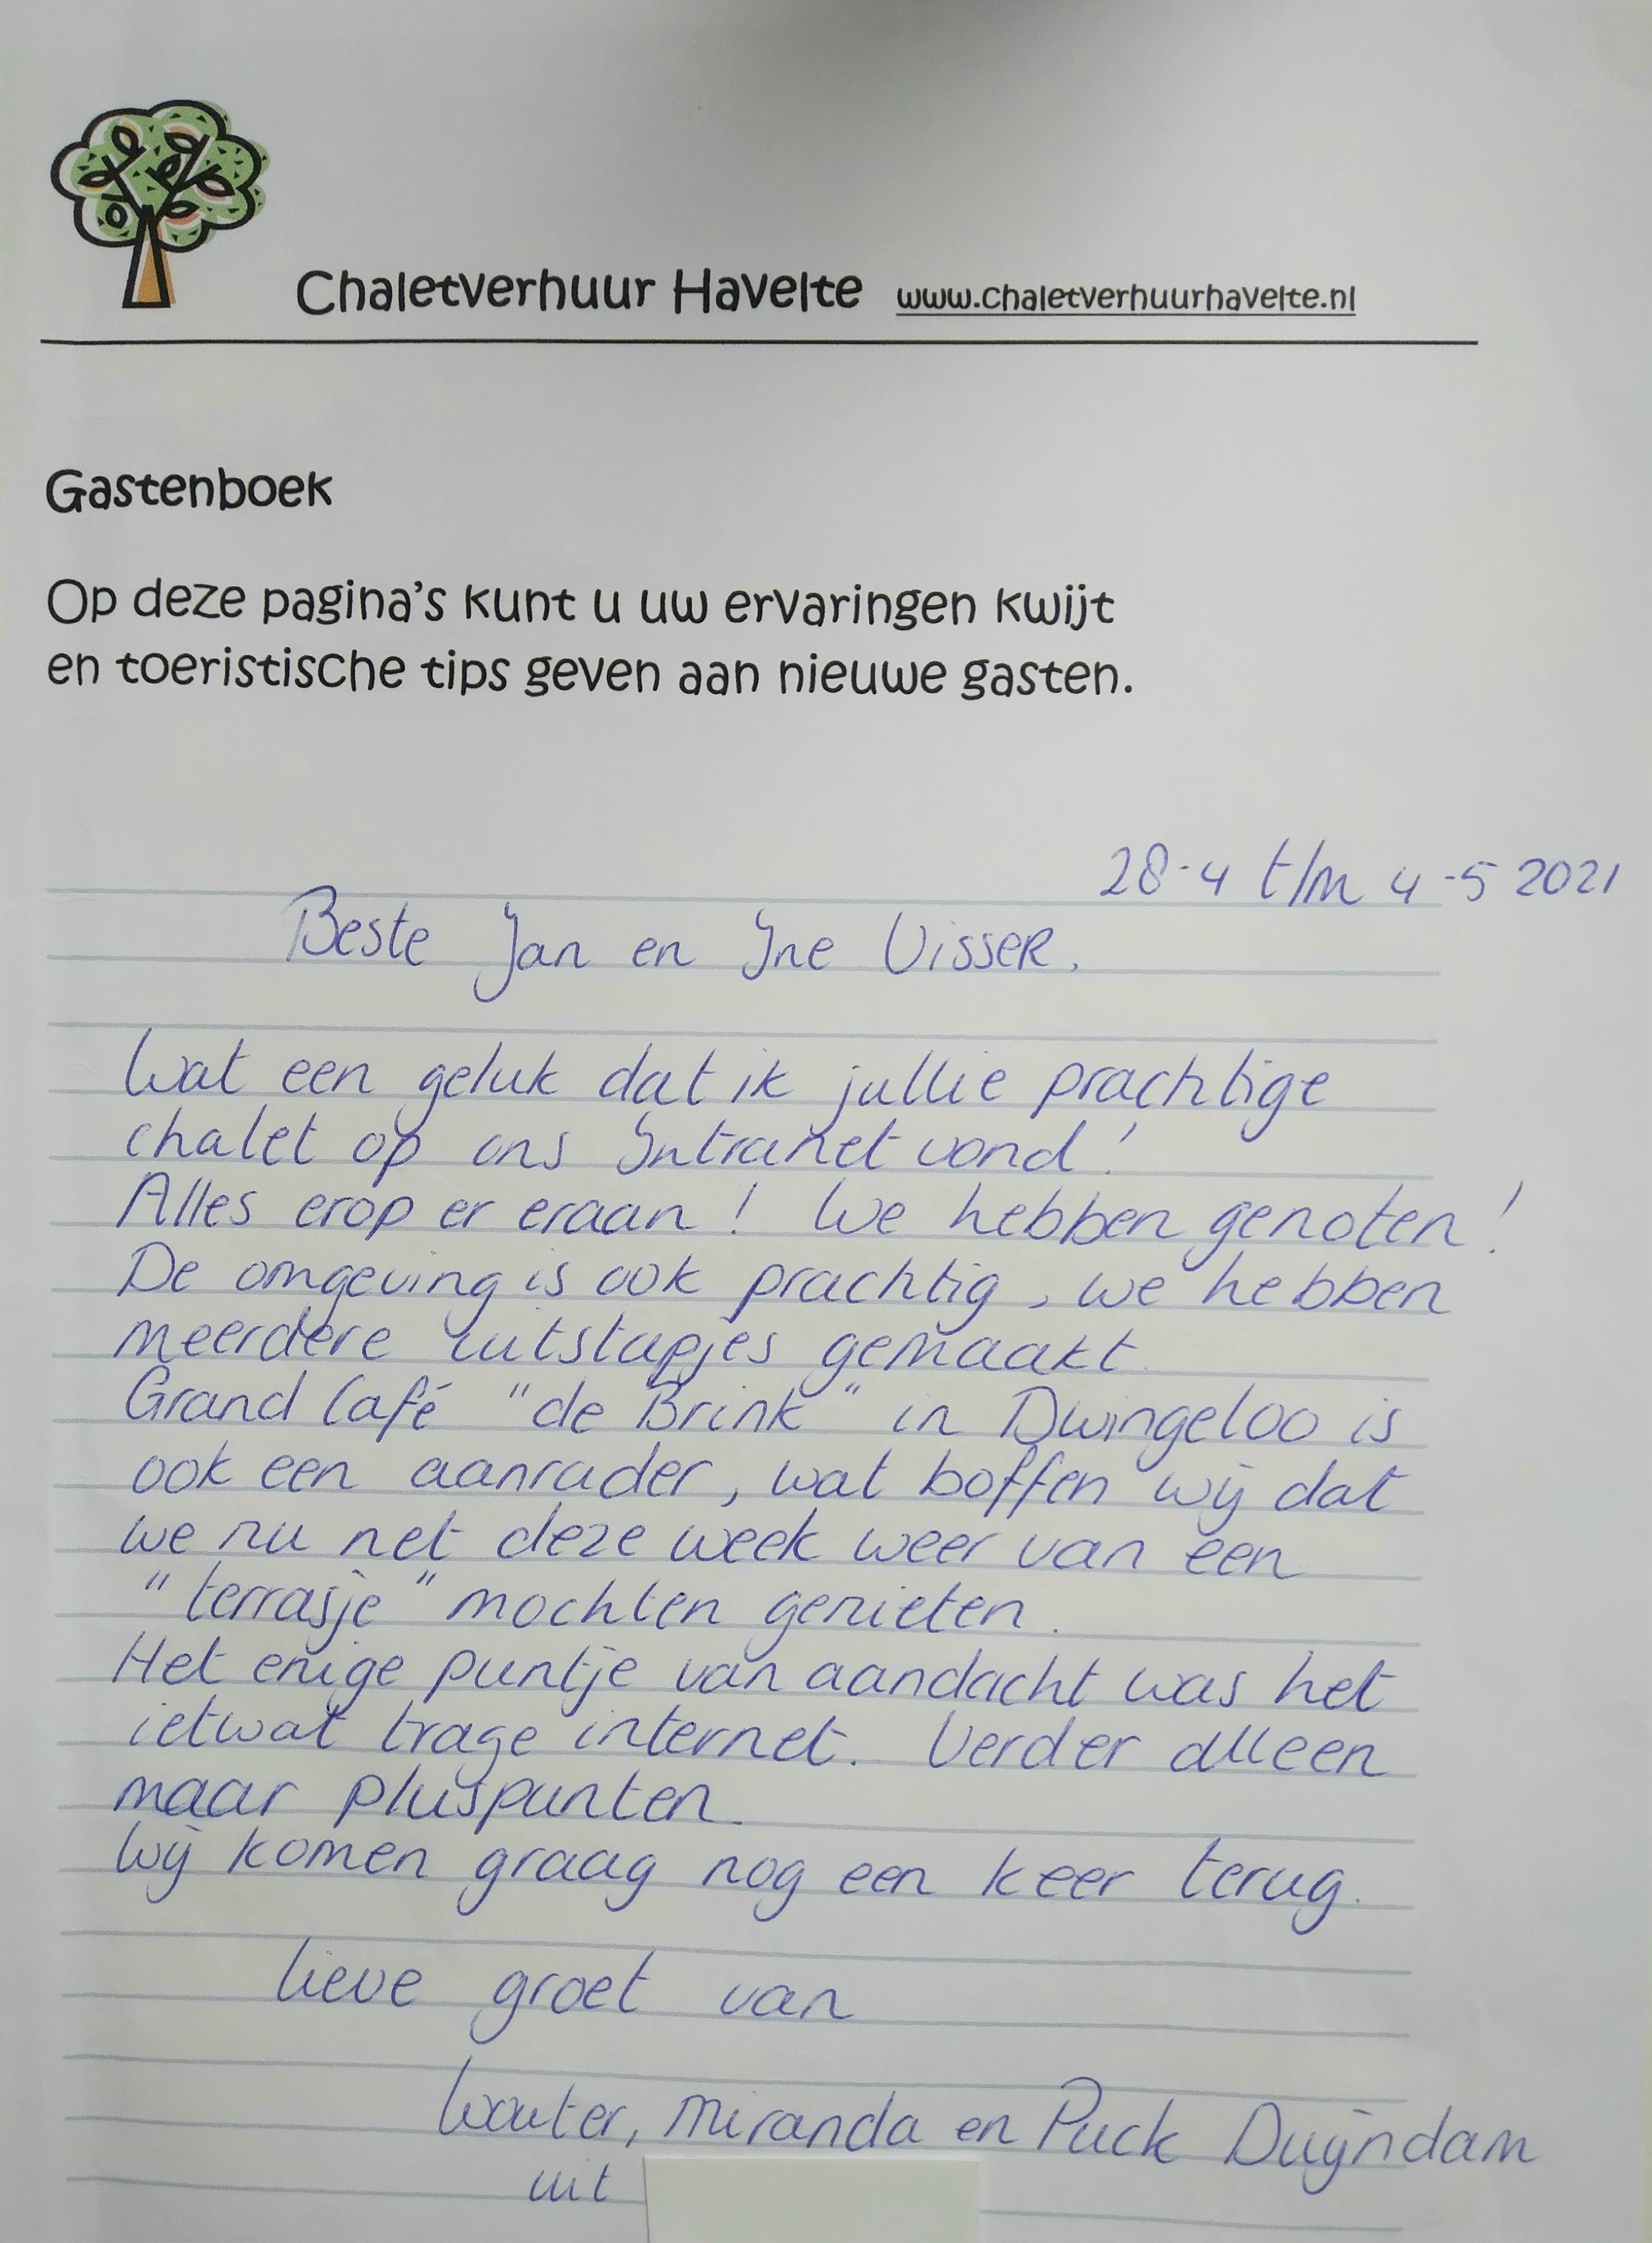 Chaletverhuur Havelte www.chaletverhuurhavelte.nl
Gastenboek
Op deze pagina's kunt u uw ervaringen kwijt
en toeristische tips geven aan nieuwe gasten.
28-4 t/m 4-5 2021
Beste Jan en Ine Visser,
Wat een geluk dat ik jullie prachtige
chalet op ons Intranet vond!
Alles erop er eraan! We hebben genoten!
De omgeving is ook prachtig, we hebben
meerdere uitstapjes gemaakt.
Grand Café "de Brink" in Dwingeloo is
ook een aanrader, wat boffen wij dat
we nu net deze week weer van een
"terrasje" mochten genieten.
Het enige puntje van aandacht was het
ietwat trage internet. Verder alleen
maar pluspunten.
Wij komen graag nog een keer terug.
lieve groet van
Wouter, Miranda en Puck Duijndam
uit